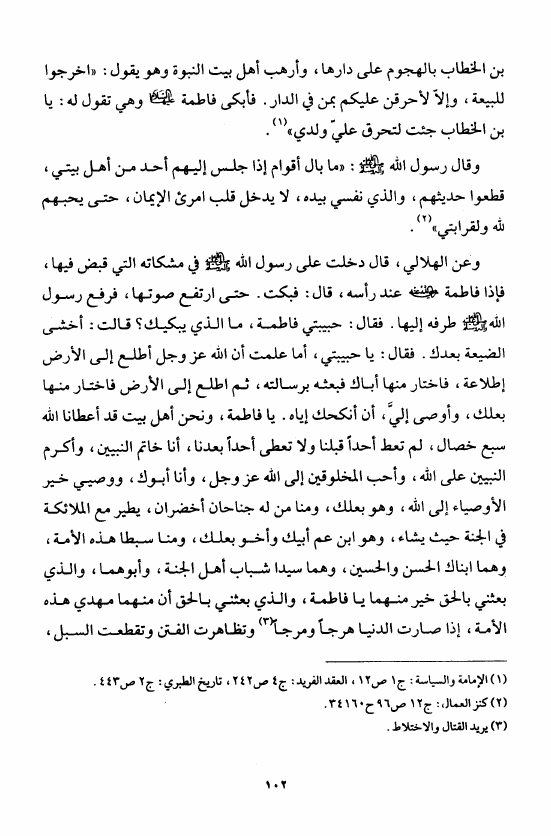 بن الخطاب بالهجوم على دارها، وأرهب أهل بيت النبوة وهو يقول: «اخرجوا
للبيعة، وإلاّ لأحرقن عليكم بمن في الدار. فأبكى فاطمة عليها السلام وهي تقول له: يا
بن الخطاب جئت لتحرق عليّ ولدي»(١).
وقال رسول الله ﷺ: «ما بال أقوام إذا جلس إليهم أحد من أهل بيتي،
قطعوا حديثهم، والذي نفسي بيده، لا يدخل قلب امرئ الإيمان، حتى يحبهم
لله ولقرابتي»(٢).
وعن الهلالي، قال دخلت على رسول الله ﷺ في مشكاته التي قبض فيها،
فإذا فاطمة عند رأسه، قال: فبكت. حتى ارتفع صوتها، فرفع رسول
الله ﷺ طرفه إليها. فقال: حبيبتي فاطمة، ما الذي يبكيك؟ قالت: أخشى
الضيعة بعدك. فقال: يا حبيبتي، أما علمت أن الله عز وجل أطلع إلى الأرض
إطلاعة، فاختار منها أباك فبعثه برسالته، ثم اطلع إلى الأرض فاختار منها
بعلك، وأوصى إليَّ، أن أنكحك إياه. يا فاطمة، ونحن أهل بيت قد أعطانا الله
سبع خصال، لم تعط أحداً قبلنا ولا تعطى أحداً بعدنا، أنا خاتم النبيين، وأكرم
النبيين على الله، وأحب المخلوقين إلى الله عز وجل، وأنا أبوك، ووصيي خير
الأوصياء إلى الله، وهو بعلك، ومنا من له جناحان أخضران، يطير مع الملائكة
في الجنة حيث يشاء، وهو ابن عم أبيك وأخو بعلك، ومنا سبطا هذه الأمة،
وهما ابناك الحسن والحسين، وهما سيدا شباب أهل الجنة، وأبوهما، والذي
بعثني بالحق خير منهما يا فاطمة، والذي بعثني بالحق أن منهما مهدي هذه
الأمة، إذا صارت الدنيا هرجاً ومرجاً(٣) وتظاهرت الفتن وتقطعت السبل،
(١) الإمامة والسياسة: ج١ ص١٢، العقد الفريد: ج٤ ص٢٤٢، تاريخ الطبري: ج٢ ص٤٤٣.
(٢) كنز العمال: ج١٢ ص٩٦ ح٣٤١٦٠.
(٣) يريد القتال والاختلاط.
١٠٢